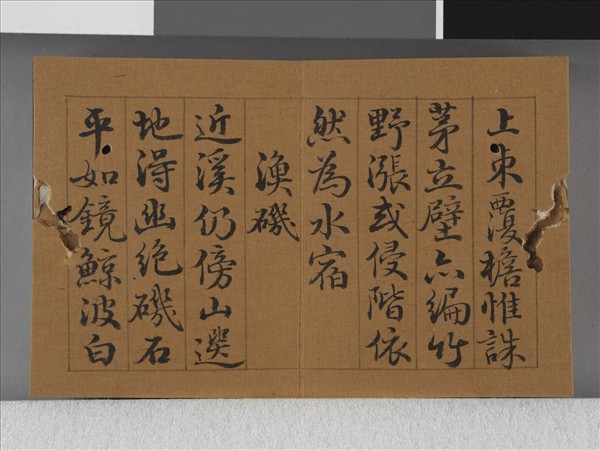 上束覆檐惟誅
茅立壁亦編竹
野漲或侵階依
然為水宿
漁磯
近溪仍傍山選
地得幽絶磯石
平如鏡鯨波白